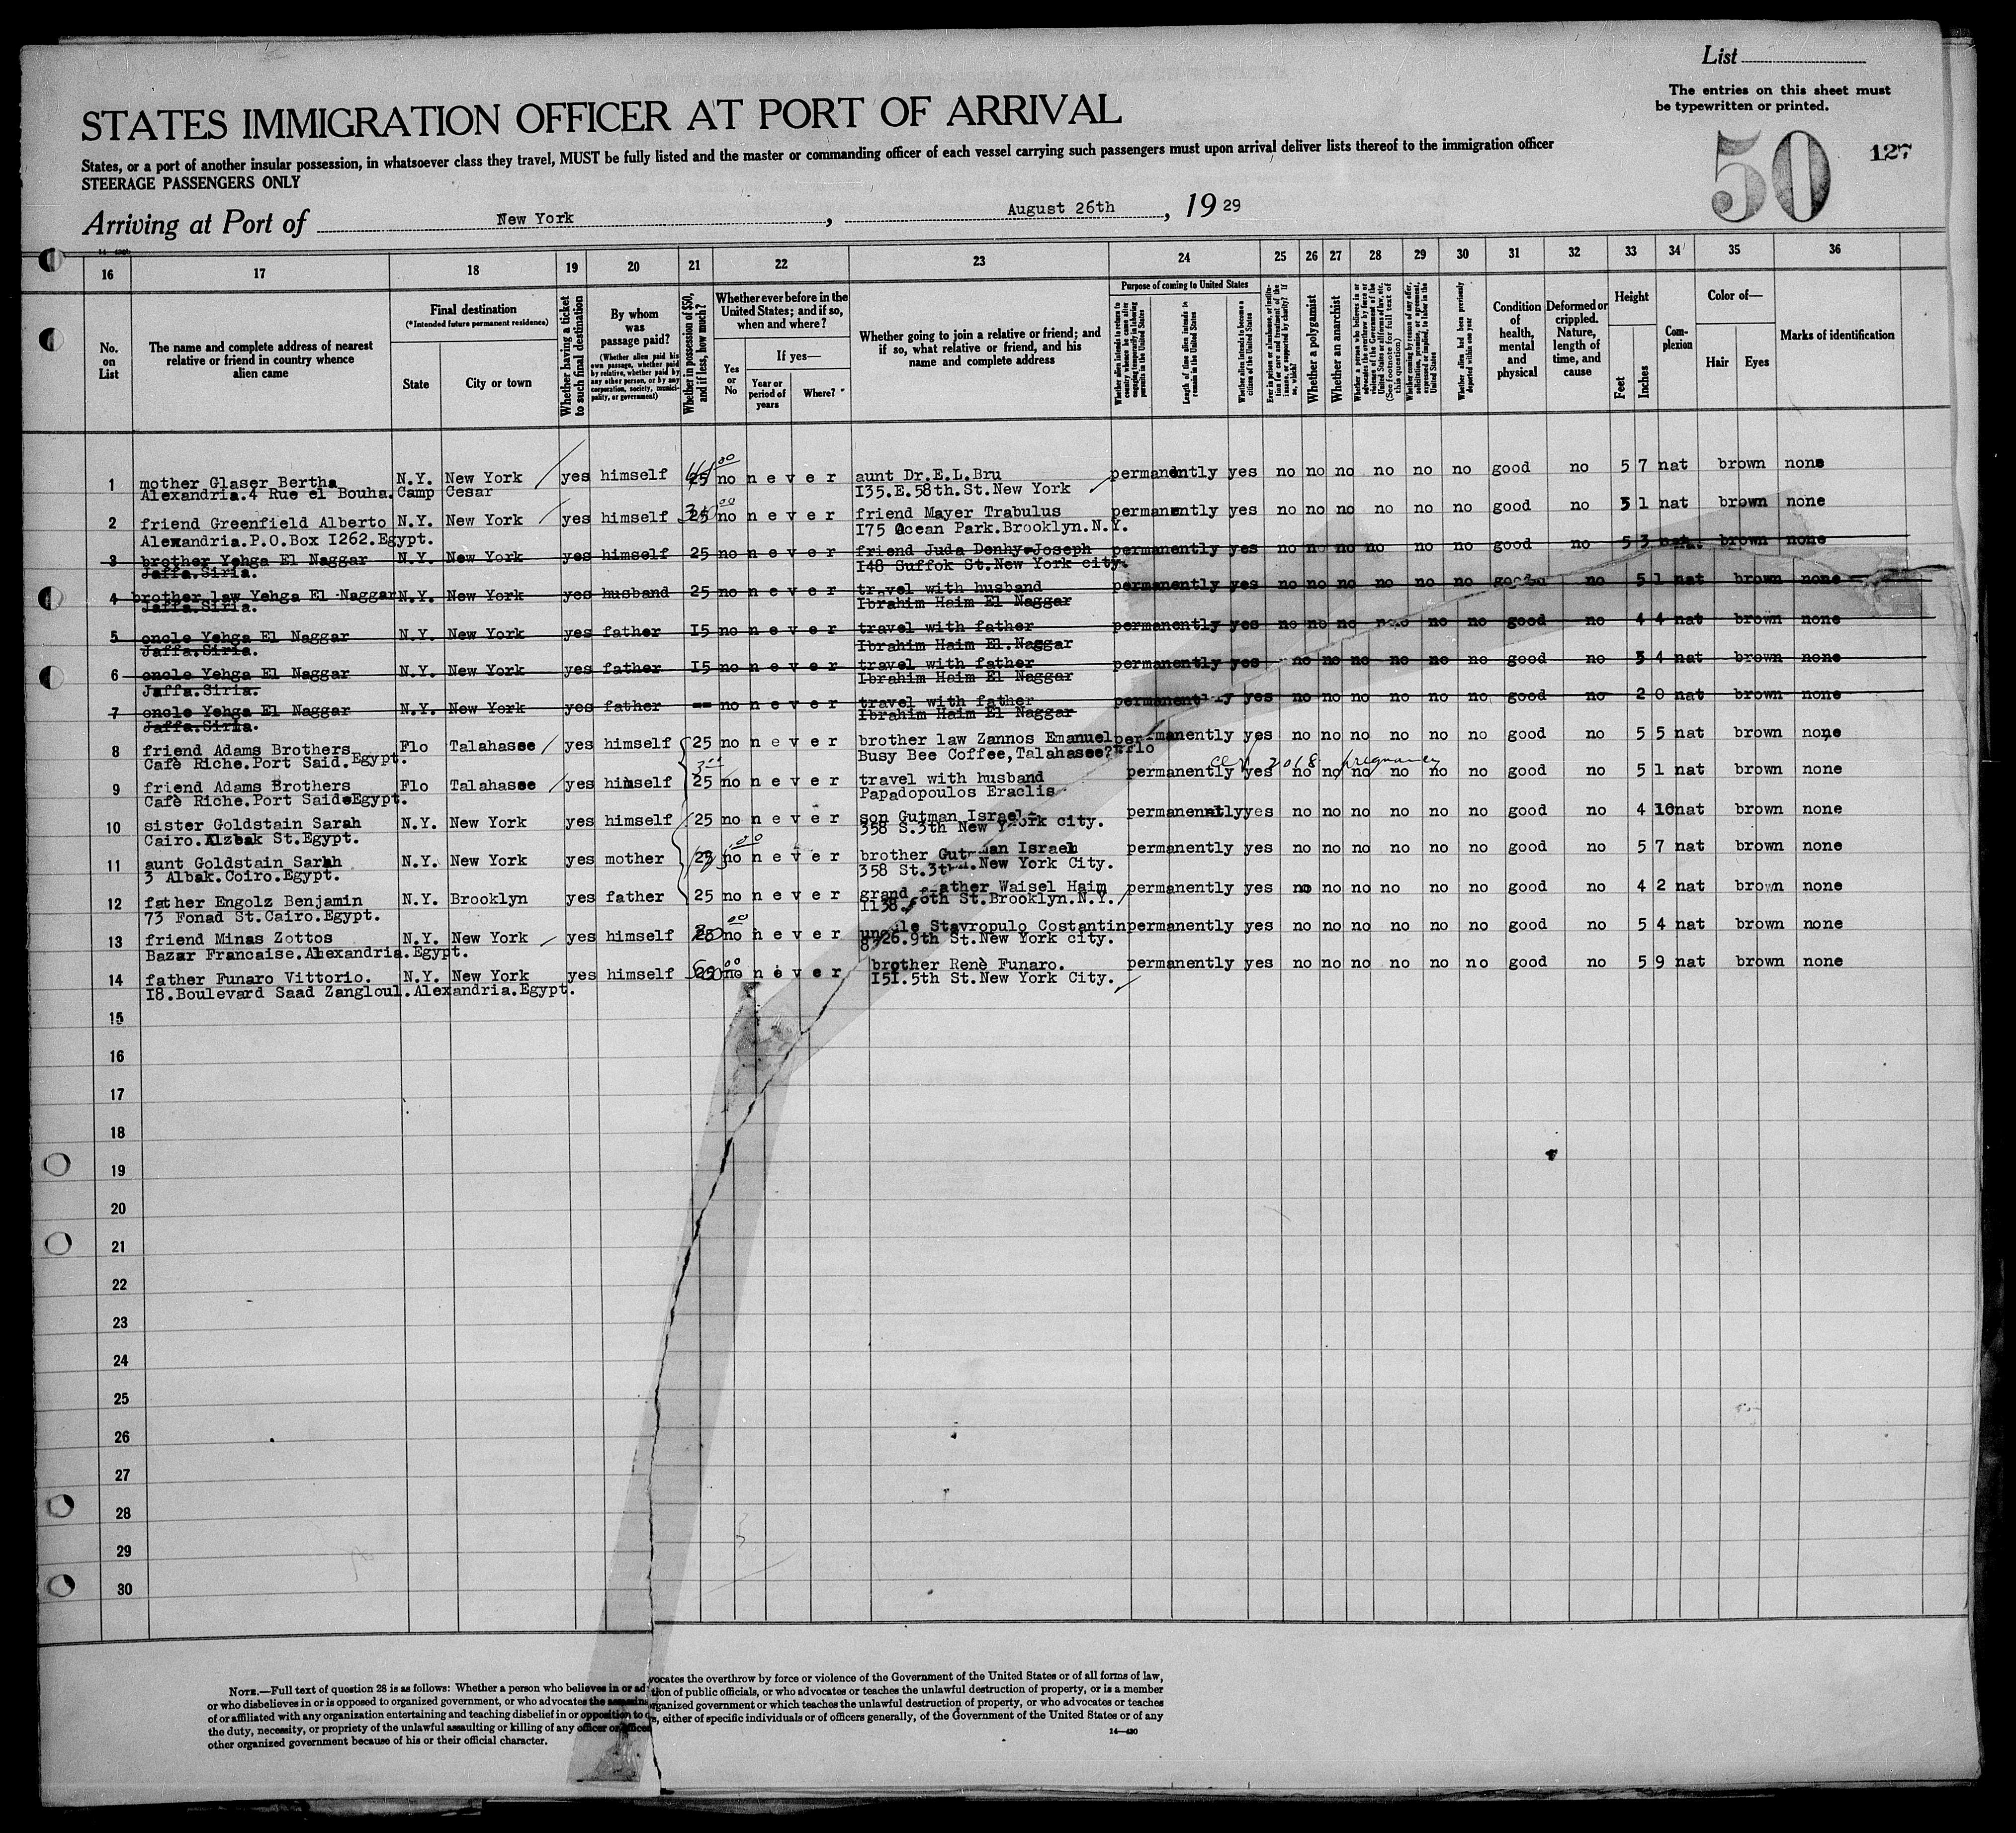 List
The entries on this sheet must
be typewritten or printed.
STATES IMMIGRATION OFFICER AT PORT OF ARRIVAL
50 127
States, or a port of another insular possession, in whatsoever class they travel, MUST be fully listed and the master or commanding officer of each vessel carrying such passengers must upon arrival deliver lists thereof to the immigration officer
STEERAGE PASSENGERS ONLY
Arriving at Port of New York, August 26th, 1929
16 17 18 19 20 21 22 23 24 25 26 27 28 29 30 31 32 33 34 35 36
No. on List
The name and complete address of nearest relative or friend in country whence alien came
Final destination
(*Intended future permanent residence)
State
City or town
Whether having a ticket to such final destination
By whom was passage paid?
(Whether alien paid his own passage, whether paid by relative, whether paid by any other person, or by any corporation, society, municipality, or government)
Whether in possession of $50, and if less, how much?
Whether ever before in the United States; and if so, when and where?
Yes or No
If yes—
Year or period of years
Where?
Whether going to join a relative or friend; and if so, what relative or friend, and his name and complete address
Purpose of coming to United States
Length of time alien intends to remain in the United States
Whether alien intends to become a citizen of the United States
Whether a polygamist
Whether an anarchist
Whether alien had been previously deported within one year
Condition of health, mental and physical
Deformed or crippled. Nature, length of time, and cause
Height
Feet
Inches
Complexion
Color of—
Hair
Eyes
Marks of identification
1 mother Glaser Bertha N.Y. New York yes himself 25 no never aunt Dr.E.L.Bru permanently yes no no no no no no good no 5 7 nat brown none
Alexandria.4 Rue el Bouha.Camp Cesar I35.E.58th.St.New York
2 friend Greenfield Alberto N.Y. New York yes himself 25 no never friend Mayer Trabulus permanently yes no no no no no no good no 5 1 nat brown none
Alexandria.P.O.Box I262.Egypt. I75 Ocean Park.Brooklyn.N.Y.
3 brother Yehga El Naggar N.Y. New York yes himself 25 no never friend Juda Denhy-Joseph permanently yes no no no no no no good no 5 3 nat. brown none
Jaffa.Siria. I48 Suffok St.New York city.
4 brother law Yehga El Naggar N.Y. New York yes husband 25 no never travel with husband permanently yes no no no no no no good no 5 1 nat brown none
Jaffa.Siria. Ibrahim Haim El Naggar
5 oncle Yehga El Naggar N.Y. New York yes father I5 no never travel with father permanently yes no no no no no no good no 4 4 nat brown none
Jaffa.Siria. Ibrahim Haim El.Naggar
6 oncle Yehga El Naggar N.Y. New York yes father I5 no never travel with father permanently yes no no no no no no good no 3 4 nat brown none
Jaffa.Siria. Ibrahim Haim El Naggar
7 oncle Yehga El Naggar N.Y. New York yes father -- no never travel with father permanently yes no no no no no no good no 2 0 nat brown none
Jaffa.Siria. Ibrahim Haim El Naggar
8 friend Adams Brothers Flo Talahasee yes himself 25 no never brother law Zannos Emanuel permanently yes no no no no no no good no 5 5 nat brown none
Cafè Riche.Port Said.Egypt. Busy Bee Coffee,Talahasee? Flo
2018 pregnancy
9 friend Adams Brothers Flo Talahasee yes himself 25 no never travel with husband permanently yes no no no no no no good no 5 1 nat brown none
Cafè Riche.Port Said.Egypt. Papadopoulos Eraclis
10 sister Goldstain Sarah N.Y. New York yes himself 25 no never son Gutman Israel permanently yes no no no no no no good no 4 10 nat brown none
Cairo.Alzbak St.Egypt. 358 S.3th New York city.
11 aunt Goldstain Sarah N.Y. New York yes mother 25 no never brother Gutman Israel permanently yes no no no no no no good no 5 7 nat brown none
3 Albak.Coiro.Egypt. 358 St.3th.New York City.
12 father Engolz Benjamin N.Y. Brooklyn yes father 25 no never grand father Waisel Haim permanently yes no no no no no no good no 4 2 nat brown none
73 Fonad St.Cairo.Egypt. II38. 6oth St.Brooklyn.N.Y.
13 friend Minas Zottos N.Y. New York yes himself 25 no never uncle Stavropulo Costantin permanently yes no no no no no no good no 5 4 nat brown none
Bazar Francaise.Alexandria.Egypt. 8726.9th St.New York city.
14 father Funaro Vittorio. N.Y. New York yes himself no never brother Renè Funaro. permanently yes no no no no no no good no 5 9 nat brown none
I8.Boulevard Saad Zangloul.Alexandria.Egypt. I5I.5th St.New York City.
15
16
17
18
19
20
21
22
23
24
25
26
27
28
29
30
NOTE.—Full text of question 28 is as follows: Whether a person who believes in or advocates the overthrow by force or violence of the Government of the United States or of all forms of law,
or who disbelieves in or is opposed to organized government, or who advocates the assassination of public officials, or who advocates or teaches the unlawful destruction of property, or is a member
of or affiliated with any organization entertaining and teaching disbelief in or opposition to organized government or which teaches the unlawful destruction of property, or who advocates or teaches
the duty, necessity, or propriety of the unlawful assaulting or killing of any officer or officers, either of specific individuals or of officers generally, of the Government of the United States or of any
other organized government because of his or their official character.
14—430